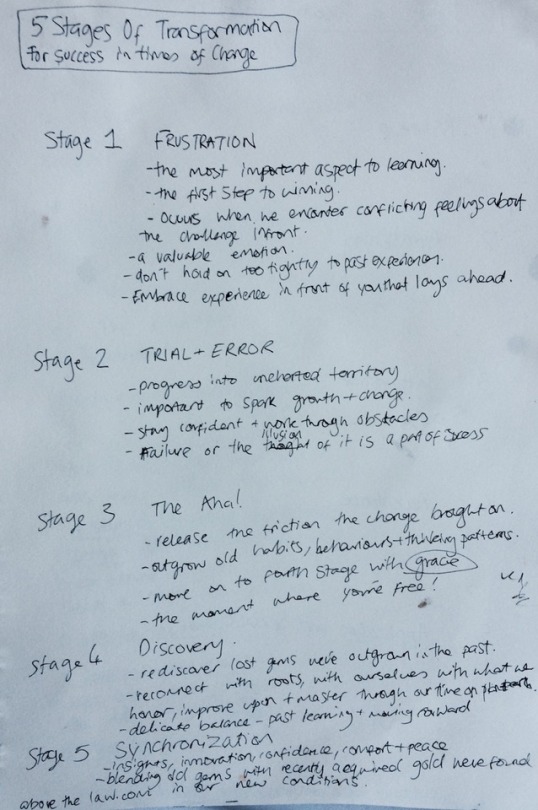 5 Stages Of Transformation
For success in times of Change
Stage 1 FRUSTRATION
- the most important aspect to learning.
- the first step to winning.
- occurs when we encounter conflicting feelings about
the challenge infront.
- a valuable emotion.
- don't hold on too tightly to past experiences.
- Embrace experience in front of you that lays ahead.
Stage 2 TRIAL + ERROR
- progress into uncharted territory
- important to spark growth + change.
- stay confident + work through obstacles
illusion
- Failure or the thought of it is a part of success
Stage 3 The Aha!
- release the friction the change brought on.
- outgrow old habits, behaviours + thinking patterns.
- move on to fourth stage with grace
- the moment where you're free!
Stage 4 Discovery.
- rediscover lost gems we've outgrown in the past.
- reconnect with roots, with ourselves with what we
honor, improve upon + master through our time on
- delicate balance - past learning + moving forward
Stage 5 SYNCHRONIZATION
- insights, innovation, confidence, comfort + peace
- blending old gems with recently acquired gold we've found
above the law.com in our new conditions.